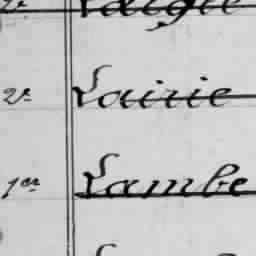 2e Lairie
1er Lambe